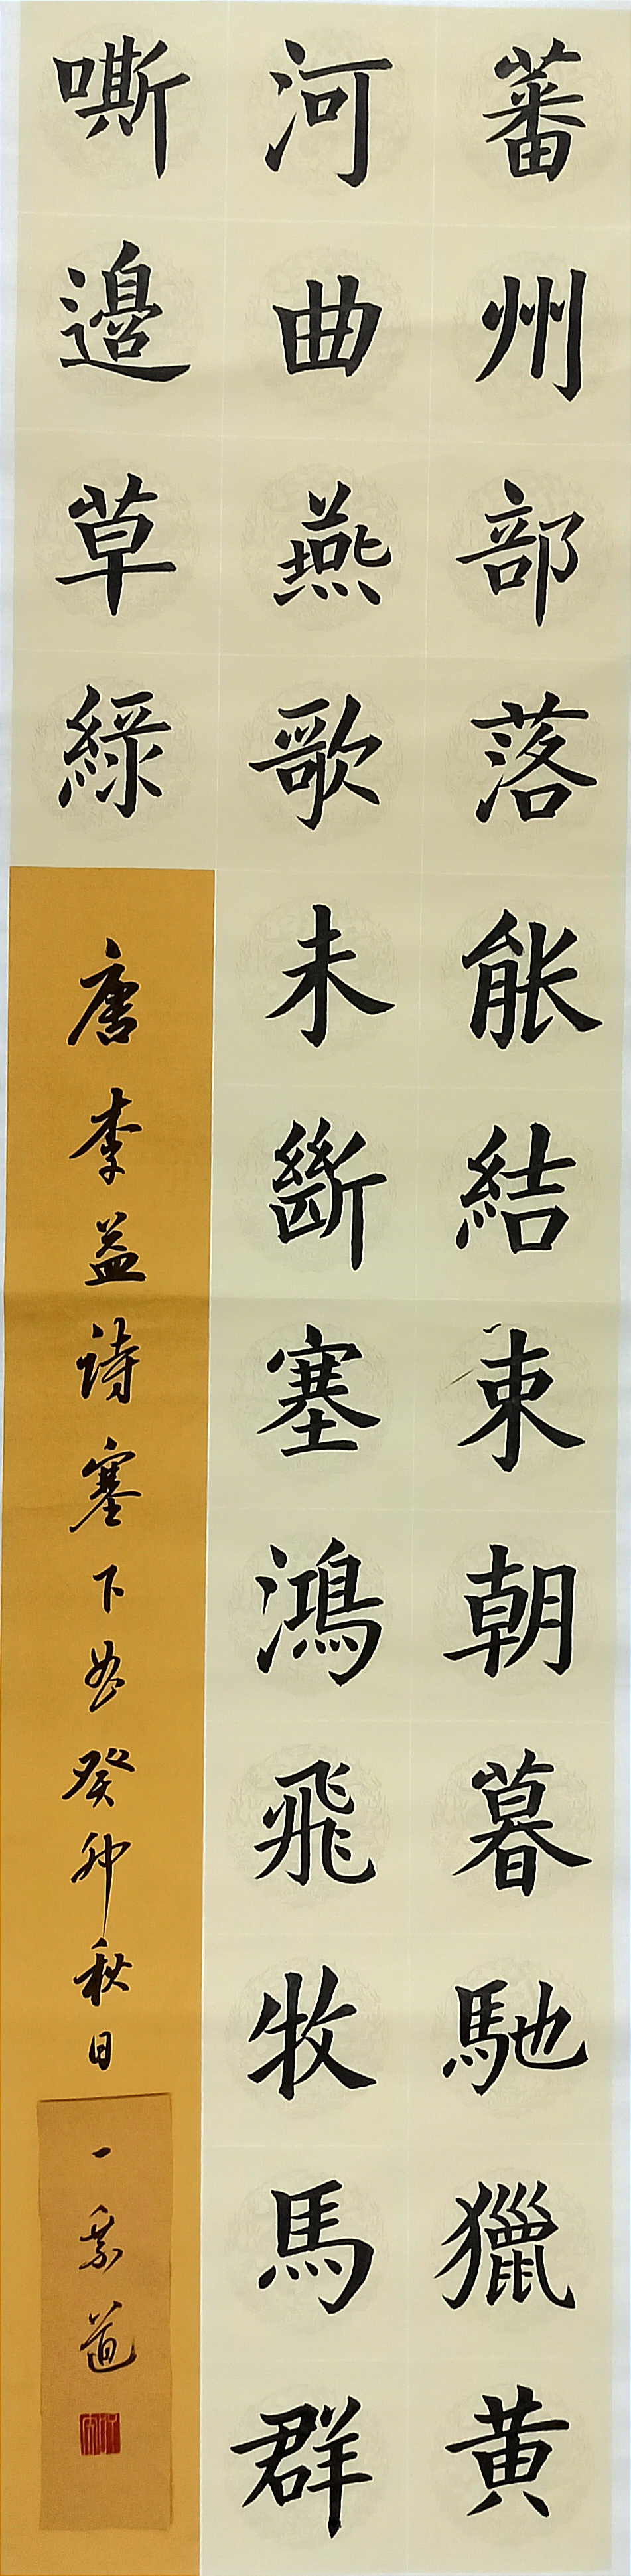 蕃州部落能結束朝暮馳獵黄
河曲燕歌未斷塞鴻飛牧馬群
嘶邊草綠
唐李益诗塞下曲癸卯秋日
一泉道